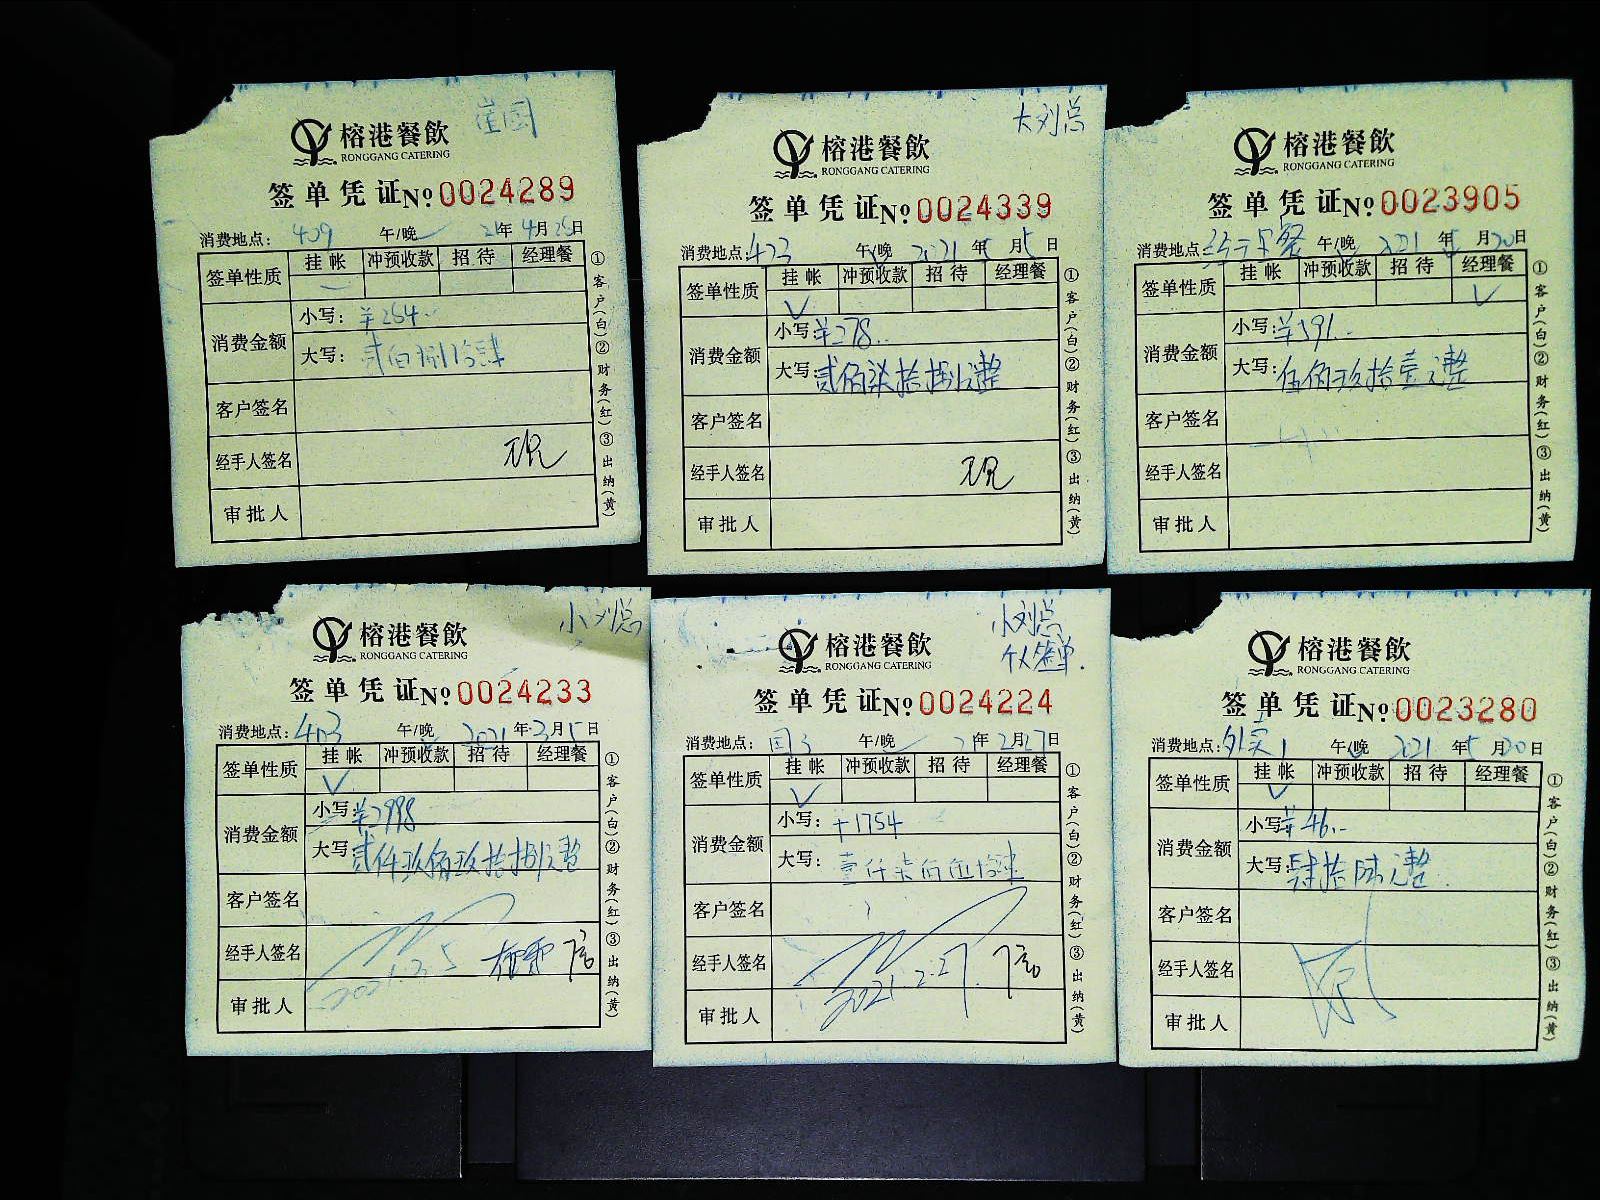 崔国
榕港餐飲
RONGGANG CATERING
签单凭证№0024289
消费地点: 409 午/晚 21年4月26日
签单性质 挂帐 冲预收款 招待 经理餐
消费金额 小写: ¥284.
大写: 贰佰捌拾肆
客户签名
经手人签名
审批人
①客户(白)②财务(红)③出纳(黄)
大刘总
榕港餐飲
RONGGANG CATERING
签单凭证№0024339
消费地点: 423 午/晚 2021年5月5日
签单性质 挂帐 冲预收款 招待 经理餐
消费金额 小写: ¥278..
大写: 贰佰柒拾捌元整
客户签名
经手人签名
审批人
①客户(白)②财务(红)③出纳(黄)
榕港餐飲
RONGGANG CATERING
签单凭证№0023905
消费地点: 午/晚 2021年5月20日
签单性质 挂帐 冲预收款 招待 经理餐
消费金额 小写: ¥591.-
大写: 伍佰玖拾壹元整
客户签名
经手人签名
审批人
①客户(白)②财务(红)③出纳(黄)
小刘总
榕港餐飲
RONGGANG CATERING
签单凭证№0024233
消费地点: 403 午/晚 2021年3月5日
签单性质 挂帐 冲预收款 招待 经理餐
消费金额 小写: ¥2998
大写: 贰仟玖佰玖拾捌元整
客户签名
经手人签名 2021.3.5
审批人
①客户(白)②财务(红)③出纳(黄)
小刘总
个人签单.
榕港餐飲
RONGGANG CATERING
签单凭证№0024224
消费地点: 国3 午/晚 21年2月27日
签单性质 挂帐 冲预收款 招待 经理餐
消费金额 小写: ¥1754
大写: 壹仟柒佰伍拾肆
客户签名
经手人签名 2021.2.27.
审批人
①客户(白)②财务(红)③出纳(黄)
榕港餐飲
RONGGANG CATERING
签单凭证№0023280
消费地点: 外卖1 午/晚 2021年5月20日
签单性质 挂帐 冲预收款 招待 经理餐
消费金额 小写: ¥46.-
大写: 肆拾陆元整
客户签名
经手人签名
审批人
①客户(白)②财务(红)③出纳(黄)